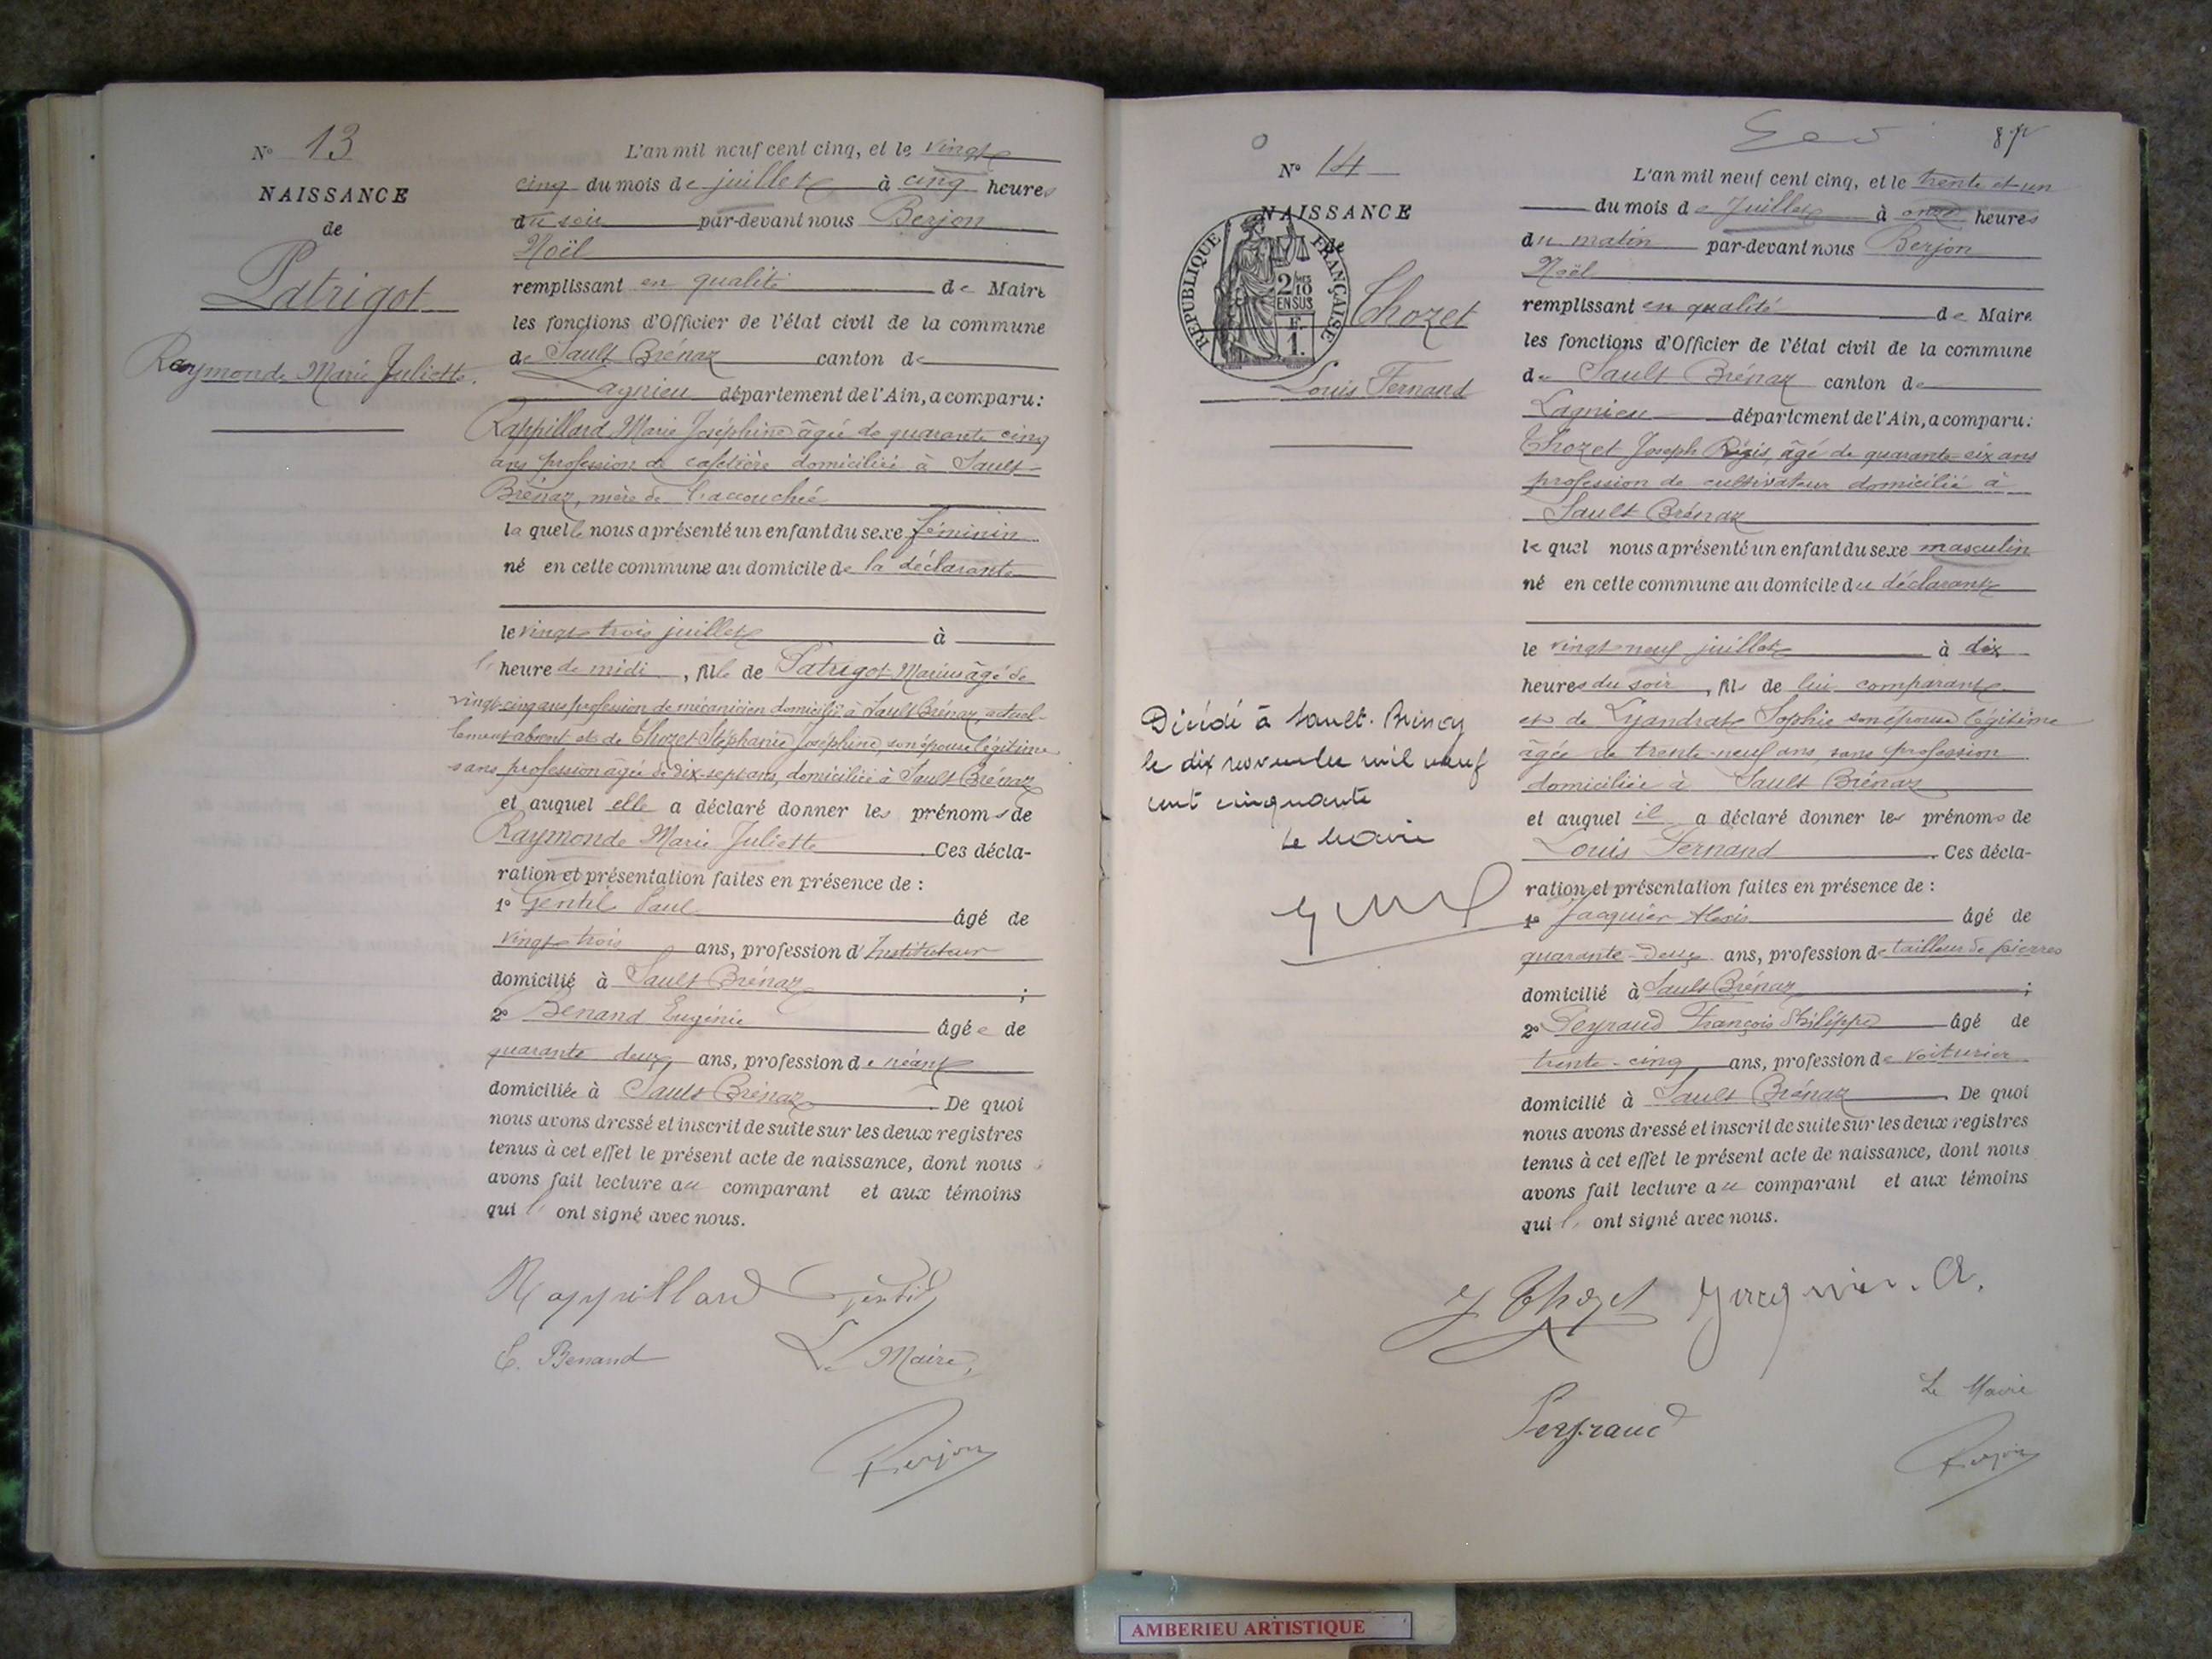 N° 13
NAISSANCE
de
Patrigot
Raymonde Marie Juliette.
L'an mil neuf cent cinq, et le vingt
cinq du mois de juillet à cinq heures
du soir par-devant nous Berjon
Noël
remplissant en qualité de Maire
les fonctions d'Officier de l'état civil de la commune
de Sault Brénaz canton de
Lagnieu département de l'Ain, a comparu:
Rappillard Marie Joséphine âgée de quarante cinq
ans profession de cafetière domiciliée à Sault-
Brénaz, mère de l'accouchée
la quelle nous a présenté un enfant du sexe féminin
né en cette commune au domicile de la déclarante
le vingt trois juillet à
l'heure de midi, fille de Patrigot Marius âgé de
vingt-cinq ans profession de mécanicien domicilié à Sault Brénaz, actuel-
lement absent et de Chozet Stéphanie Joséphine, son épouse légitime
sans profession âgée de dix-sept ans, domiciliée à Sault Brénaz
et auquel elle a déclaré donner les prénoms de
Raymonde Marie Juliette Ces décla-
ration et présentation faites en présence de :
1° Gentil Paul âgé de
vingt trois ans, profession d'Instituteur
domicilié à Sault Brénaz ;
2° Benand Eugénie âgée de
quarante deux ans, profession de néant
domiciliée à Sault Brénaz De quoi
nous avons dressé et inscrit de suite sur les deux registres
tenus à cet effet le présent acte de naissance, dont nous
avons fait lecture au comparant et aux témoins
qui l' ont signé avec nous.
Rappillard Gentil
E. Benand Le Maire,
Berjon
87
N° 14
NAISSANCE
de
REPUBLIQUE FRANÇAISE
2/10
EN SUS
F.
1.
Chozet
Louis Fernand
Décédé à Sault-Brénaz
le dix novembre mil neuf
cent cinquante
Le Maire
L'an mil neuf cent cinq, et le trente et un
du mois de Juillet à onze heures
du matin par-devant nous Berjon
Noël
remplissant en qualité de Maire
les fonctions d'Officier de l'état civil de la commune
de Sault Brénaz canton de
Lagnieu département de l'Ain, a comparu:
Chozet Joseph Régis, âgé de quarante-six ans
profession de cultivateur domicilié à
Sault Brénaz
le quel nous a présenté un enfant du sexe masculin
né en cette commune au domicile du déclarant
le vingt-neuf juillet à dix
heures du soir, fils de lui comparant
et de Lyandrat Sophie son épouse légitime
âgée de trente-neuf ans, sans profession
domiciliée à Sault Brénaz
et auquel il a déclaré donner les prénoms de
Louis Fernand Ces décla-
ration et présentation faites en présence de :
1° Jacquier Alexis âgé de
quarante-deux ans, profession de tailleur de pierres
domicilié à Sault Brénaz ;
2° Peyraud François Philippe âgé de
trente-cinq ans, profession de voiturier
domicilié à Sault Brénaz De quoi
nous avons dressé et inscrit de suite sur les deux registres
tenus à cet effet le présent acte de naissance, dont nous
avons fait lecture au comparant et aux témoins
qui l' ont signé avec nous.
J Chozet Jacquier. A.
Peyraud
Le Maire
Berjon
AMBERIEU ARTISTIQUE